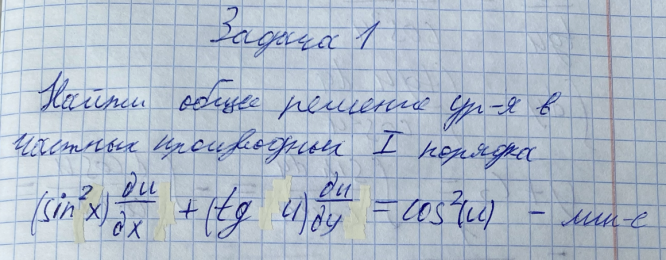 Задача 1
Найти общее решение ур-я в
частных производных I порядка
(sin²x) ∂u/∂x + (tg u) ∂u/∂y = cos²(u) -